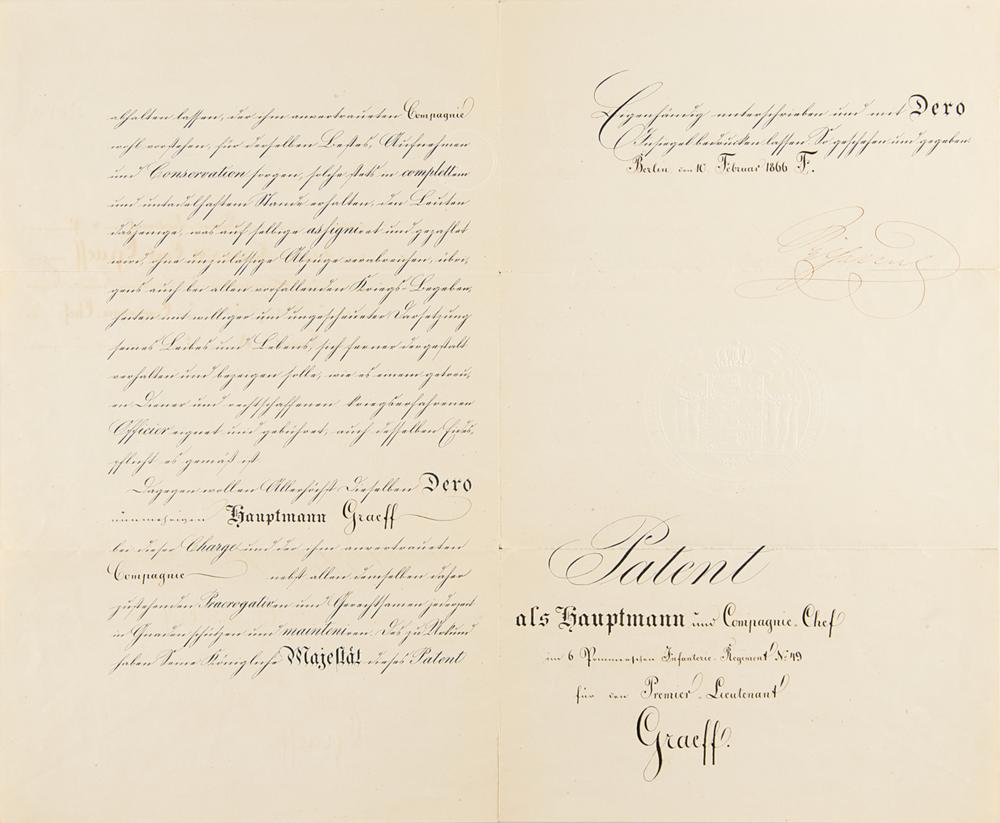 abhalten lassen, der ihm anvertraueten Compagnie
wohl vorstehen, für derselben Bestes, Aufnehmen
und Conservation sorgen, solche stets in complettem
und untadelhaftem Stande erhalten, den Leuten
dasjenige, was auf selbige assigniret und gezahlet
wird, ohne unzulässige Abzüge verabreichen, übri,
gens auch bei allen vorfallenden Kriegs-Begeben,
heiten mit williger und ungescheueter Darsetzung
seines Leibes und Lebens, sich ferner dergestalt
verhalten und bezeigen solle, wie es einem getreu,
en Diener und rechtschaffenen kriegserfahrenen
Officier eignet und gebühret, auch desselben Eides,
pflicht es gemäß ist.
Dagegen wollen Allerhöchst Dieselben Dero
nunmehrigen Hauptmann Graeff
bei dieser Charge und der ihm anvertraueten
Compagnie nebst allen demselben daher
zustehenden Praerogativen und Gerechtsamen jederzeit
in Gnaden schützen und mainteniren. Des zu Urkund
haben Seine Königliche Majestät dieses Patent
Eigenhändig unterschrieben und mit Dero
Insiegel bedrucken lassen. So geschehen und gegeben
Berlin den 10 Februar 1866 F.
Patent
als Hauptmann und Compagnie-Chef
im 6 Pommerschen Infanterie-Regiment No 49
für den Premier-Lieutenant
Graeff.